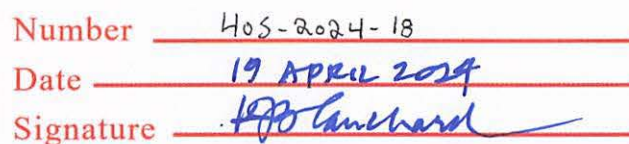 Number HOS-2024-18
Date 19 APRIL 2024
Signature Blanchard